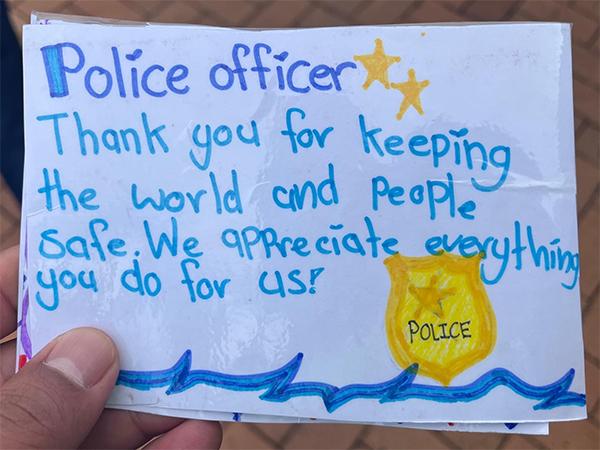 Police officer
Thank you for keeping
the world and people
safe. We appreciate everything
you do for us!
POLICE